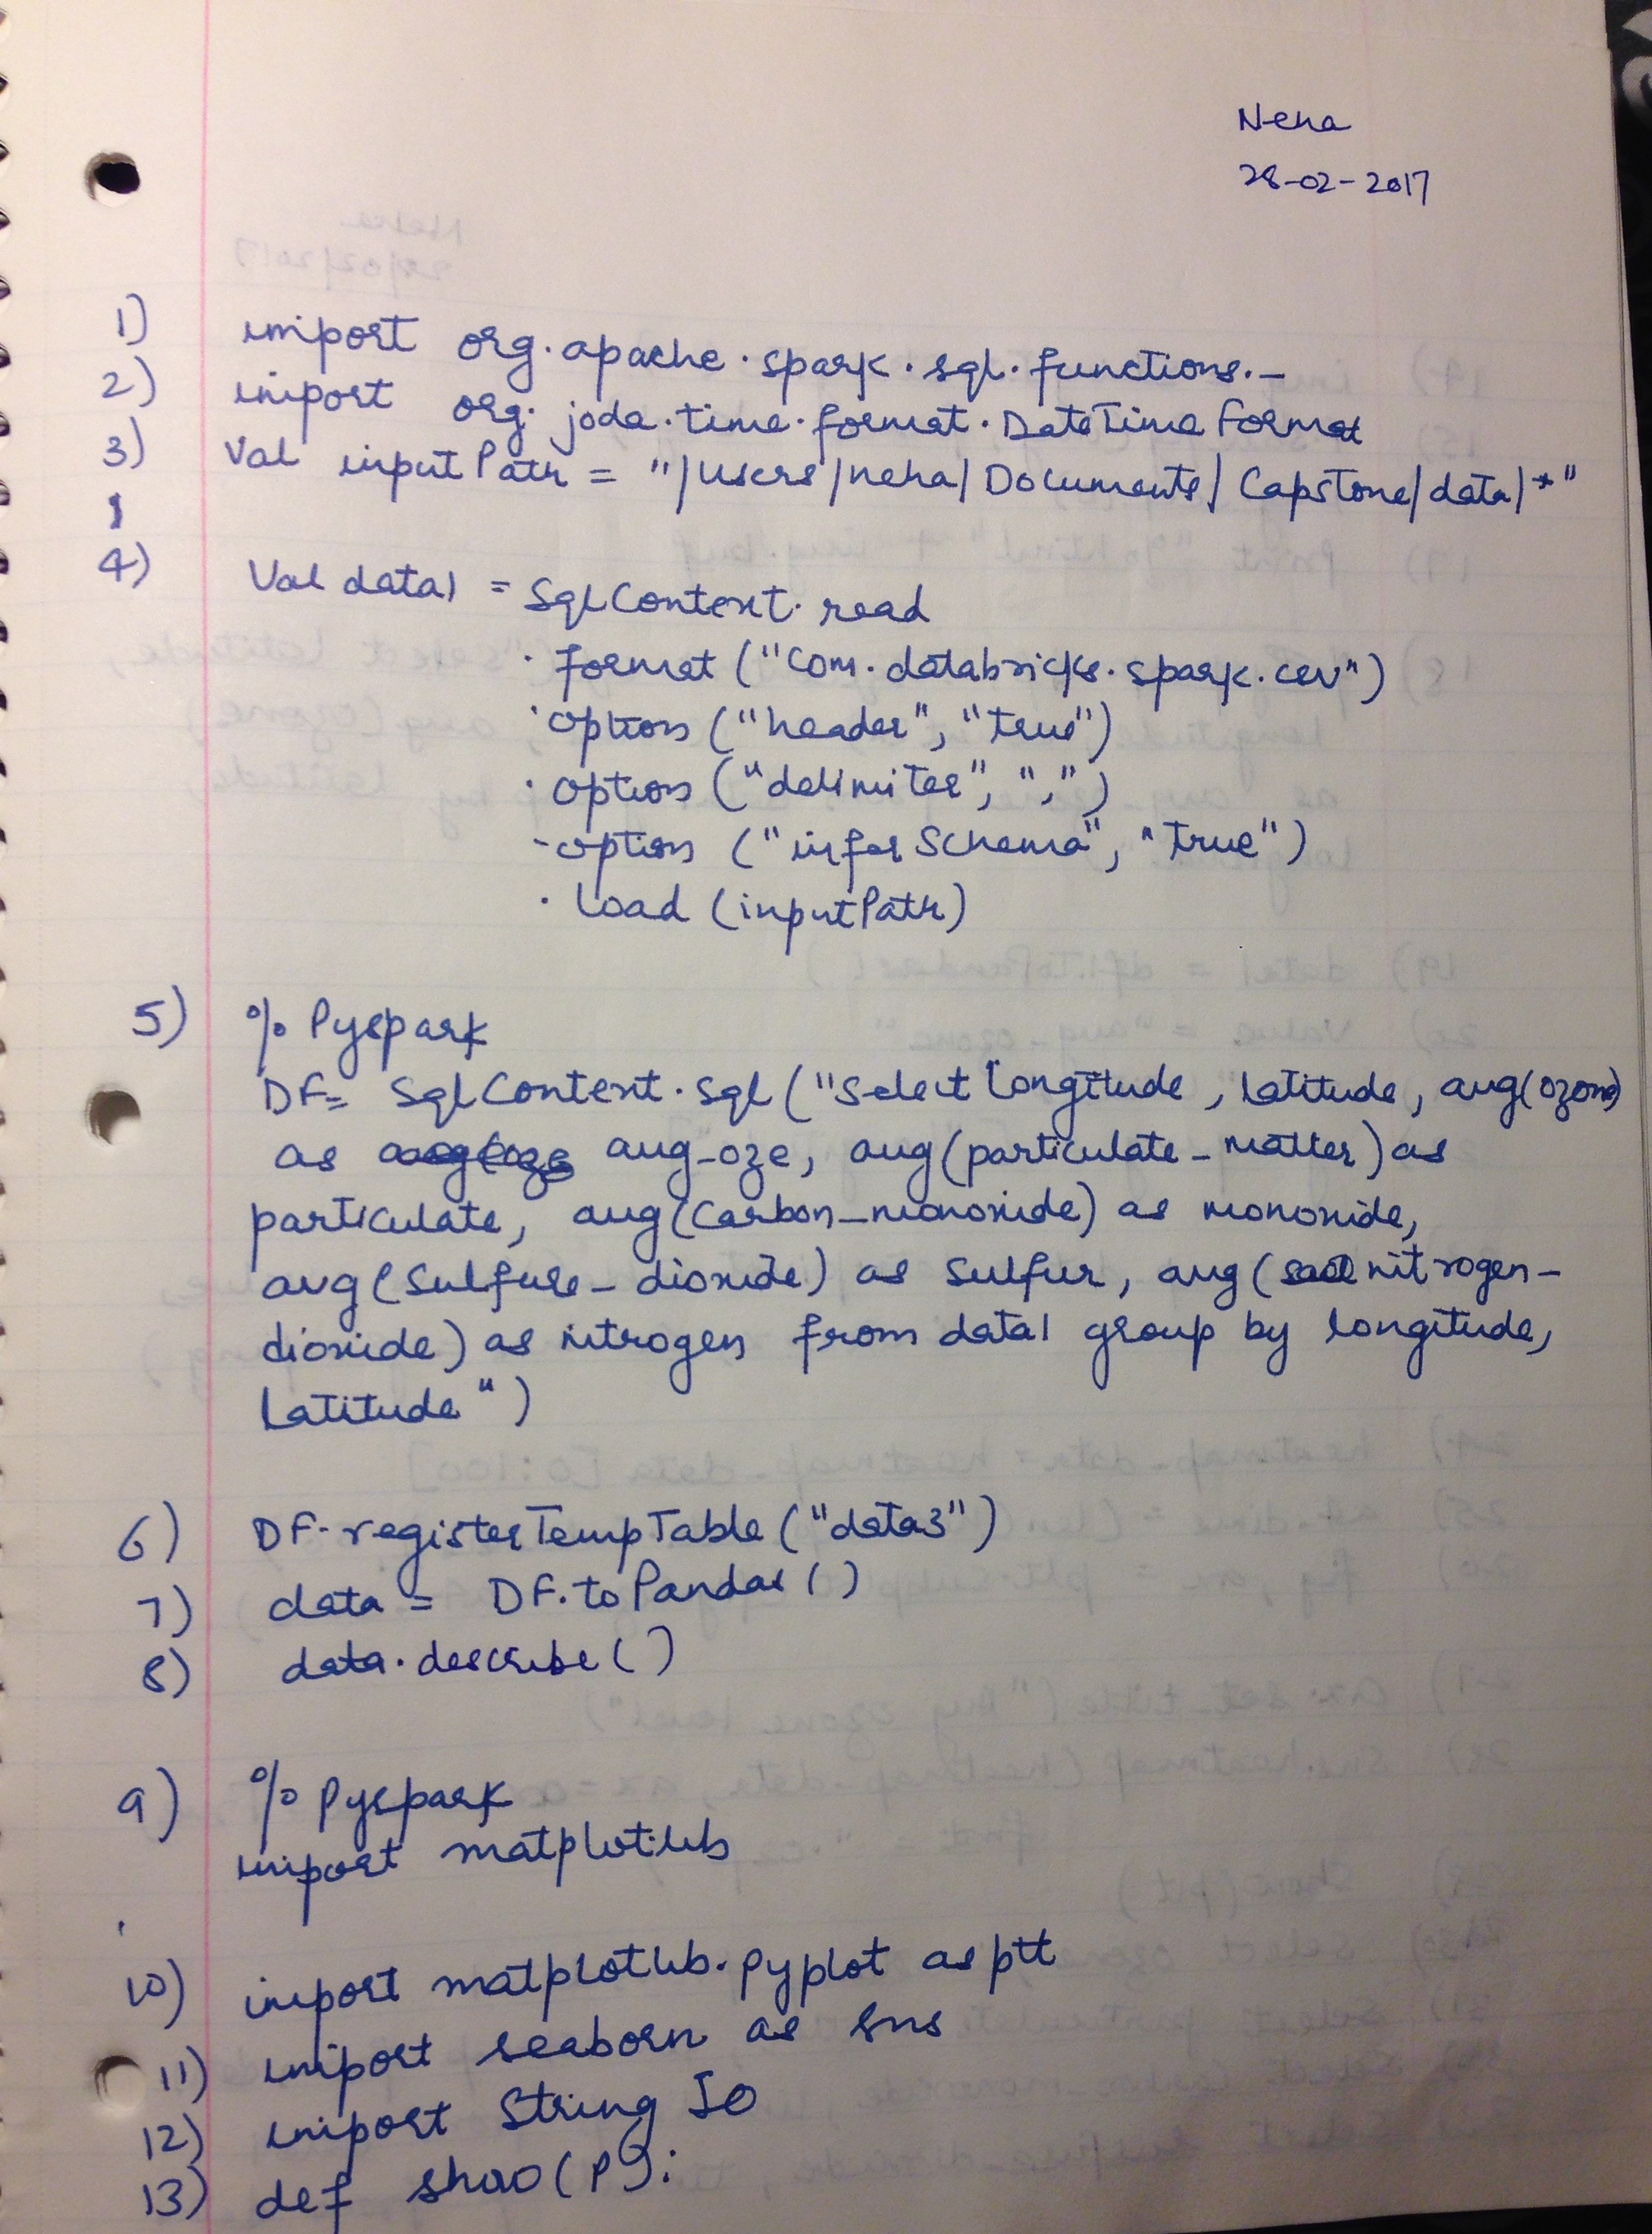 Neha
28-02-2017
1) import org.apache.spark.sql.functions._
2) import org.joda.time.format.DateTimeFormat
3) Val inputPath = "/Users/neha/Documents/Capstone/data/*"
4) Val data1 = SqlContext.read
.format ("com.databricks.spark.csv")
.option ("header", "true")
.option ("delimiter", ",")
.option ("inferSchema", "true")
.load (inputPath)
5) % Pyspark
DF= SqlContext.sql ("Select longitude, latitude, avg(ozone)
as avg_oze, avg(particulate_matter) as
particulate, avg(carbon_monoxide) as monoxide,
avg(sulfure_dioxide) as sulfur, avg(nitrogen_
dioxide) as nitrogen from data1 group by longitude,
latitude")
6) DF.registerTempTable ("data3")
7) data = DF.toPandas()
8) data.describe()
9) % Pyspark
import matplotlib
10) import matplotlib.pyplot as plt
11) import seaborn as sns
12) import StringIO
13) def show(p):